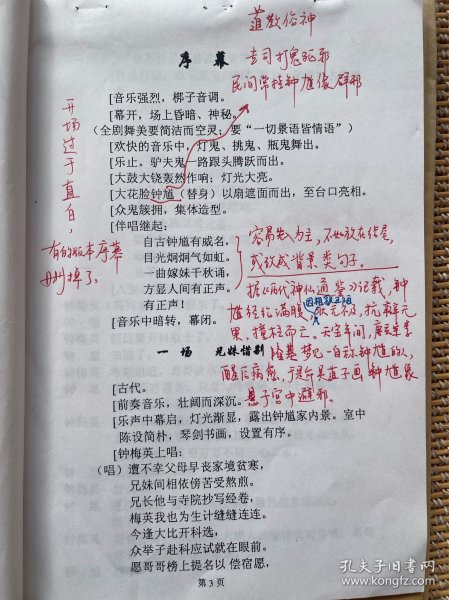 道教俗神
专司打鬼驱邪
民间常挂钟馗像辟邪
序 幕
[音乐强烈，梆子音调。
[幕开，场上昏暗、神秘。
（全剧舞美要简洁而空灵；要“一切景语皆情语”）
[欢快的音乐中，灯鬼、挑鬼、瓶鬼舞出。
[乐止。驴夫鬼一路跟头腾跃而出。
[大鼓大铙轰然作响；灯光大亮。
[大花脸钟馗（替身）以扇遮面而出，至台口亮相。
[众鬼簇拥，集体造型。
[伴唱继起：
自古钟馗有威名，
目光炯炯气如虹。
一曲嫁妹千秋诵，
方显人间有正声。
有正声！
[音乐中暗转，幕闭。
开场过于直白，
有的版本序幕
删掉了。
容易先入为主，不如放在结尾，
或改成背景类句子。
据《历代神仙通鉴》记载，钟
馗经纶满腹
因相貌丑陋
状元不及，抗辩无
果，撞柱而亡。天宝年间，唐玄宗李
隆基梦见一自称钟馗的人，
醒后病愈，于是吴道子画钟馗象
悬于宫中避邪。
一 场 兄妹惜别
[古代。
[前奏音乐，壮阔而深沉。
[乐声中幕启，灯光渐显，露出钟馗家内景。室中
陈设简朴，琴剑书画，设置有序。
[钟梅英上唱：
（唱）遭不幸父母早丧家境贫寒，
兄妹间相依傍苦受熬煎。
兄长他与寺院抄写经卷，
梅英我也为生计缝缝连连。
今逢大比开科选，
众举子赴科应试就在眼前。
愿哥哥榜上提名以 偿宿愿，
第 3 页
孔夫子旧书网